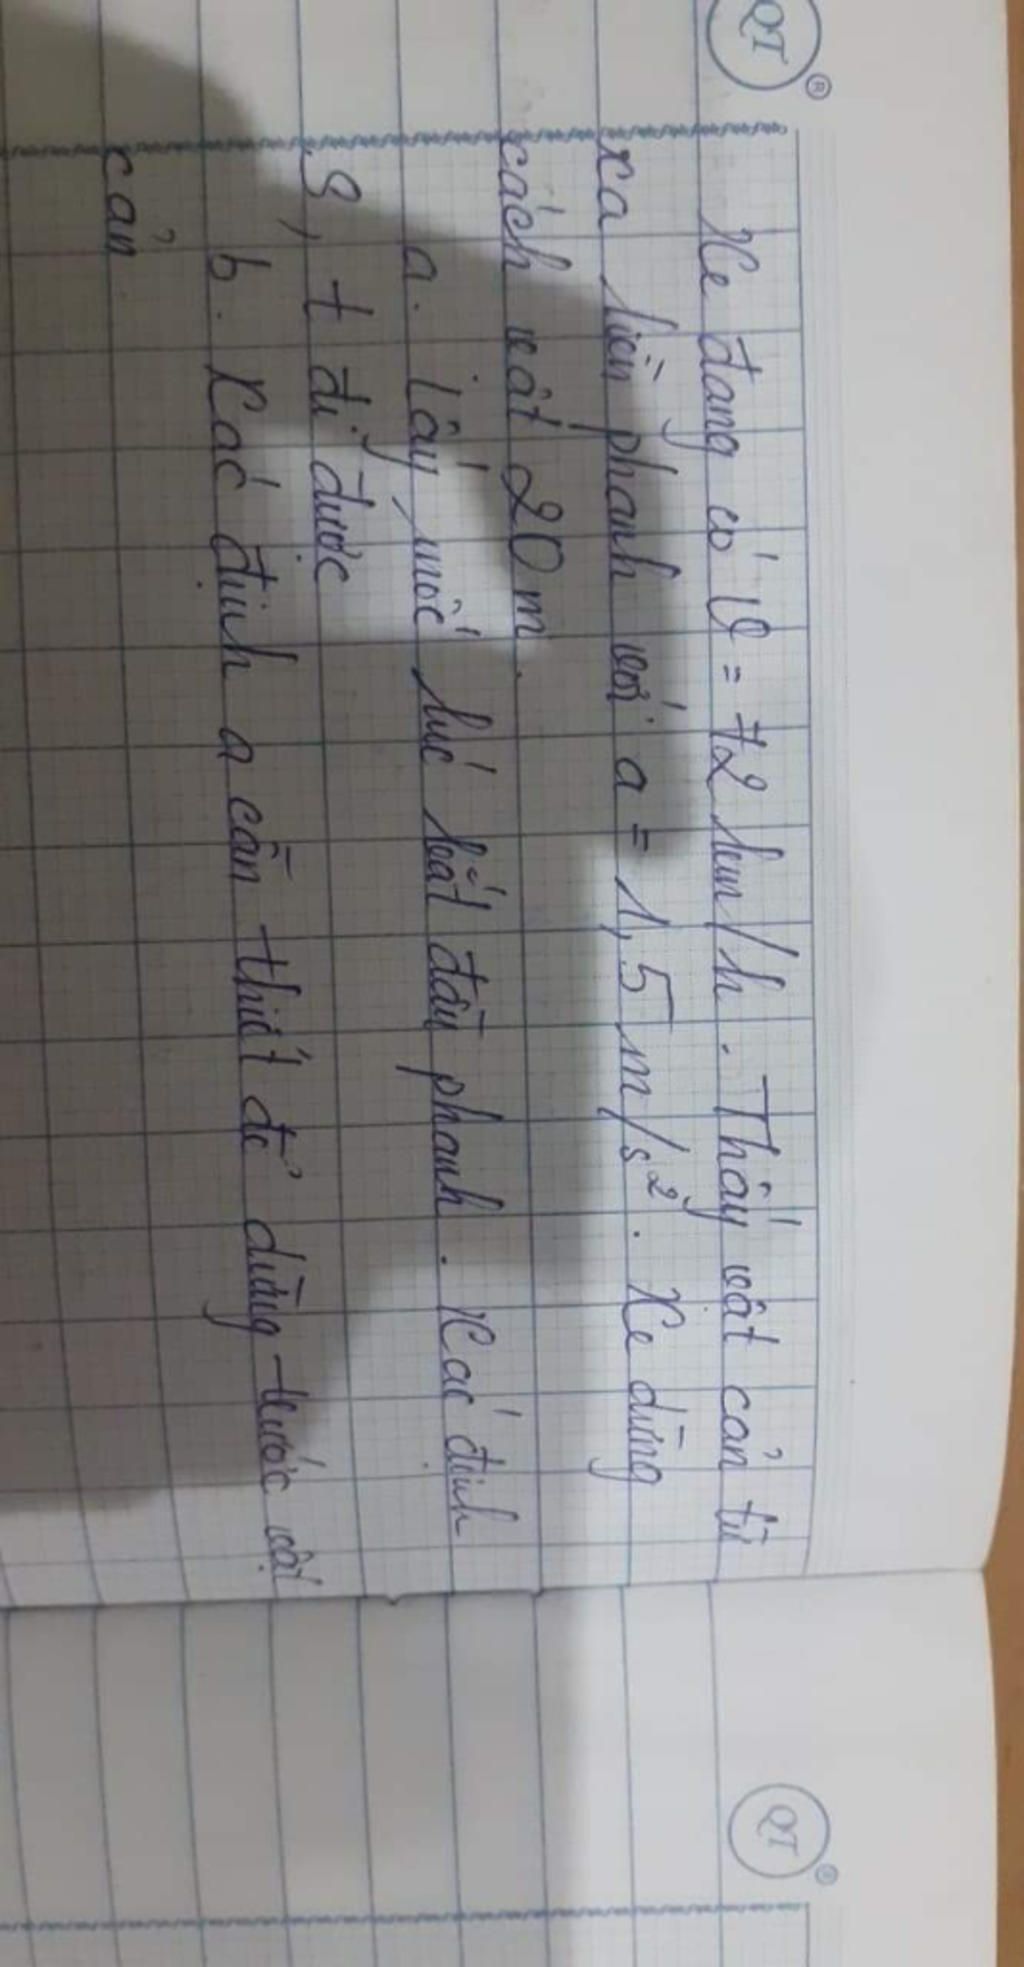 QT
Xe đang có v = 72 km/h. Thấy vật cản từ
xa liền phanh với a = 1,5 m/s². Xe dừng
cách vật 20 m.
a. Lấy mốc lúc bắt đầu phanh. Xác định
S, t đi được
b. Xác định a cần thiết để dừng trước vật
cản
QT